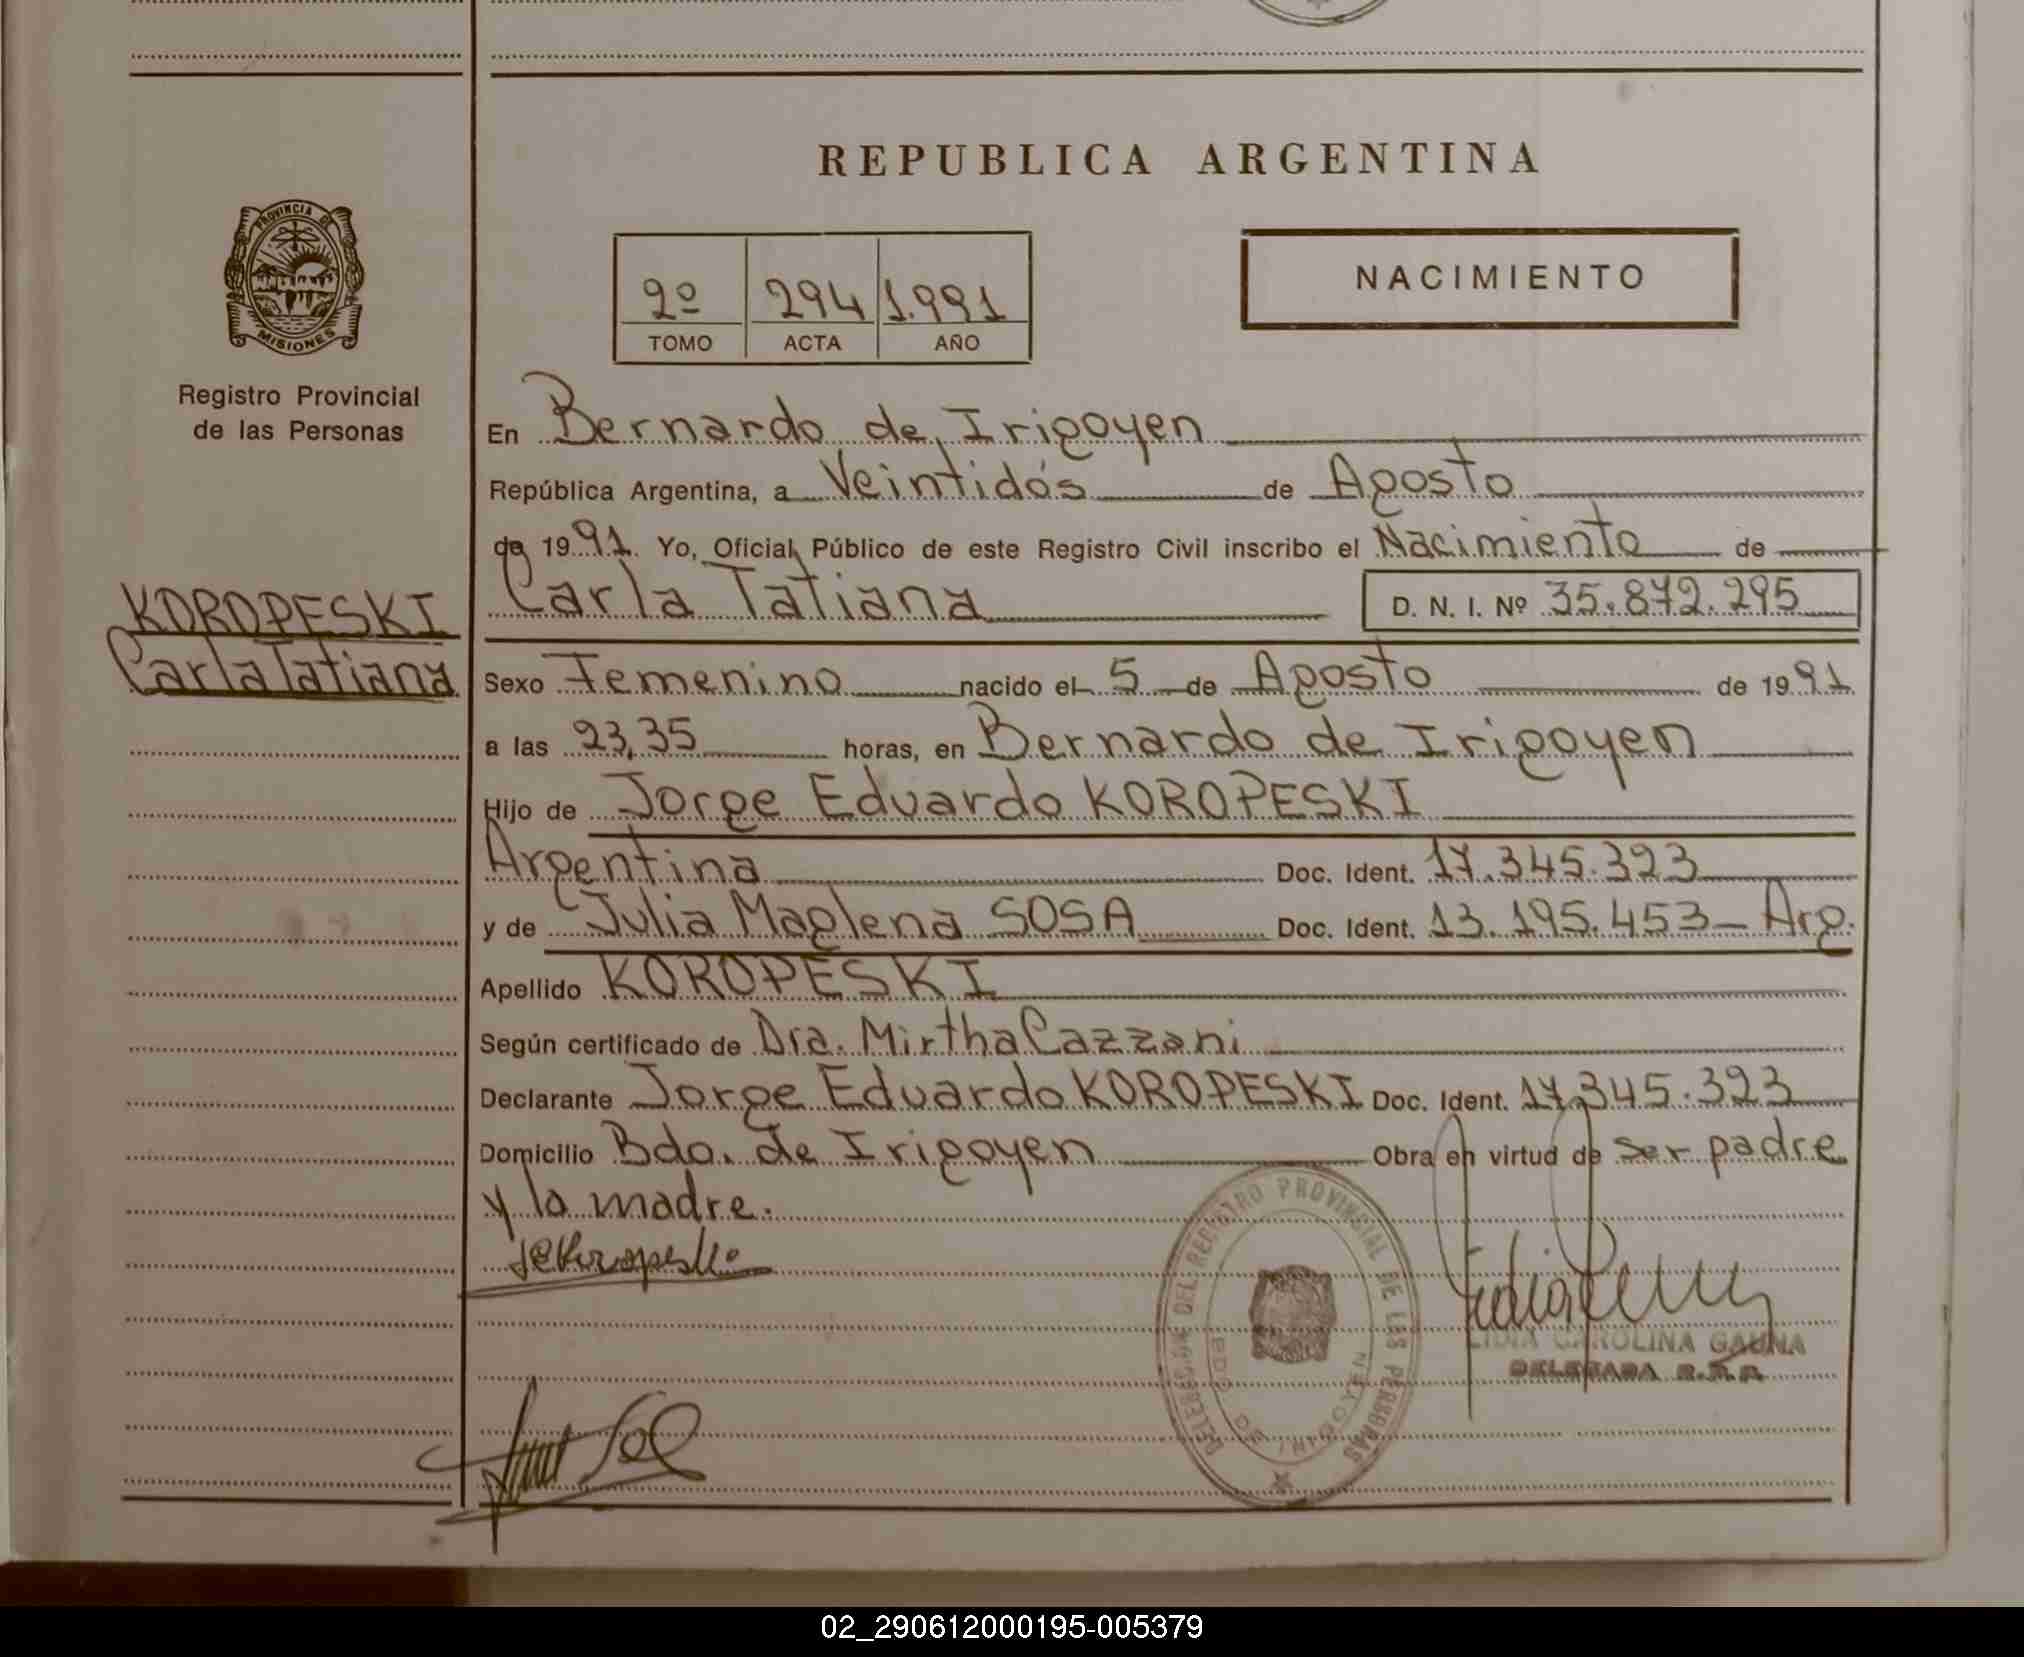 REPUBLICA ARGENTINA
PROVINCIA DE
MISIONES
Registro Provincial
de las Personas
2º 294 1.991
TOMO ACTA AÑO
NACIMIENTO
KOROPESKI
Carla Tatiana
En Bernardo de Irigoyen
República Argentina, a Veintidós de Agosto
de 1991. Yo, Oficial Público de este Registro Civil inscribo el Nacimiento de
Carla Tatiana D. N. I. Nº 35.872.295
Sexo Femenino nacido el 5 de Agosto de 1991
a las 23,35 horas, en Bernardo de Irigoyen
Hijo de Jorge Eduardo KOROPESKI
Argentina Doc. Ident. 17.345.323
y de Julia Maglena SOSA Doc. Ident. 13.195.453 - Arg.
Apellido KOROPESKI
Según certificado de Dra. Mirtha Cazzani
Declarante Jorge Eduardo KOROPESKI Doc. Ident. 17.345.323
Domicilio Bdo. de Irigoyen Obra en virtud de ser padre
y la madre.
DELEGACION DEL REGISTRO PROVINCIAL DE LAS PERSONAS
BDO. DE IRIGOYEN
LIDIA CAROLINA GAUNA
DELEGADA R.P.P.
02_290612000195-005379